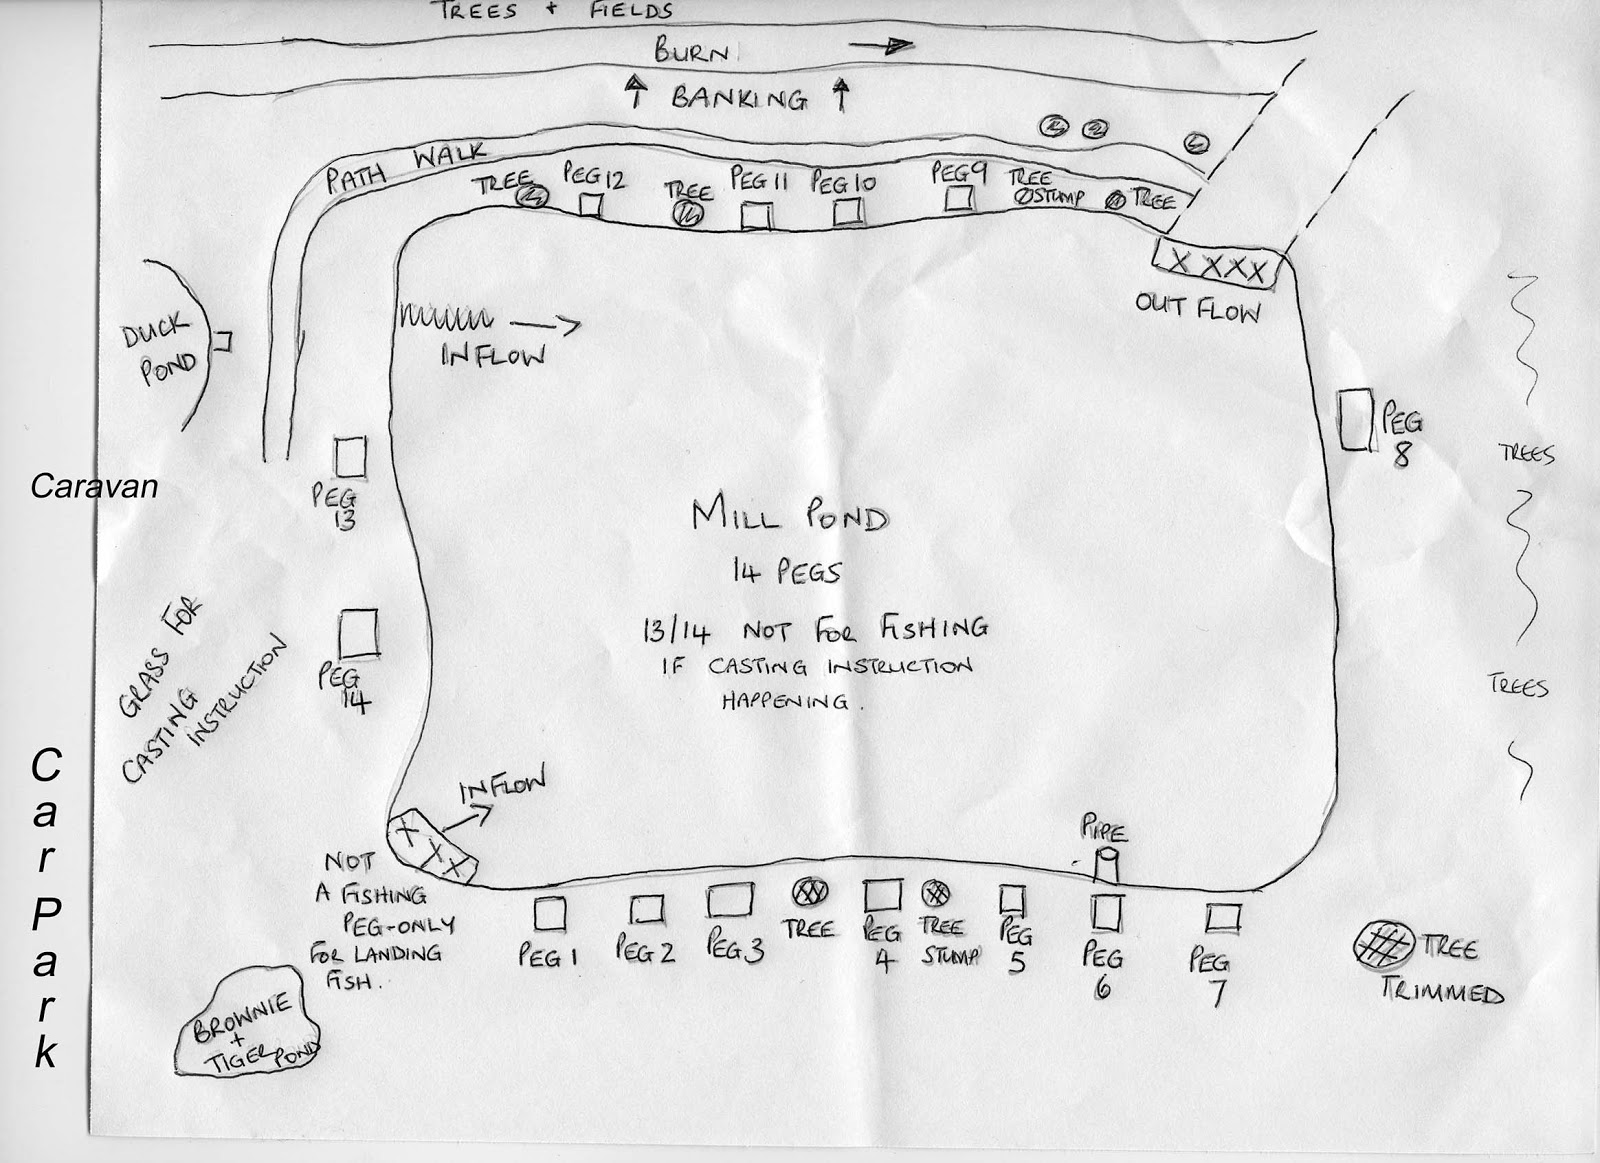 TREES + FIELDS
BURN
BANKING
PATH WALK
TREE
PEG 12
TREE
PEG 11
PEG 10
PEG 9
TREE
STUMP
TREE
X XXX
OUT FLOW
DUCK
POND
INFLOW
PEG
8
TREES
Caravan
PEG
13
MILL POND
14 PEGS
13/14 NOT FOR FISHING
IF CASTING INSTRUCTION
HAPPENING.
GRASS FOR
CASTING
INSTRUCTION
PEG
14
TREES
Car Park
INFLOW
X X X
PIPE
NOT
A FISHING
PEG-ONLY
FOR LANDING
FISH.
PEG 1
PEG 2
PEG 3
TREE
PEG
4
TREE
STUMP
PEG
5
PEG
6
PEG
7
TREE
TRIMMED
BROWNIE
+
TIGER POND